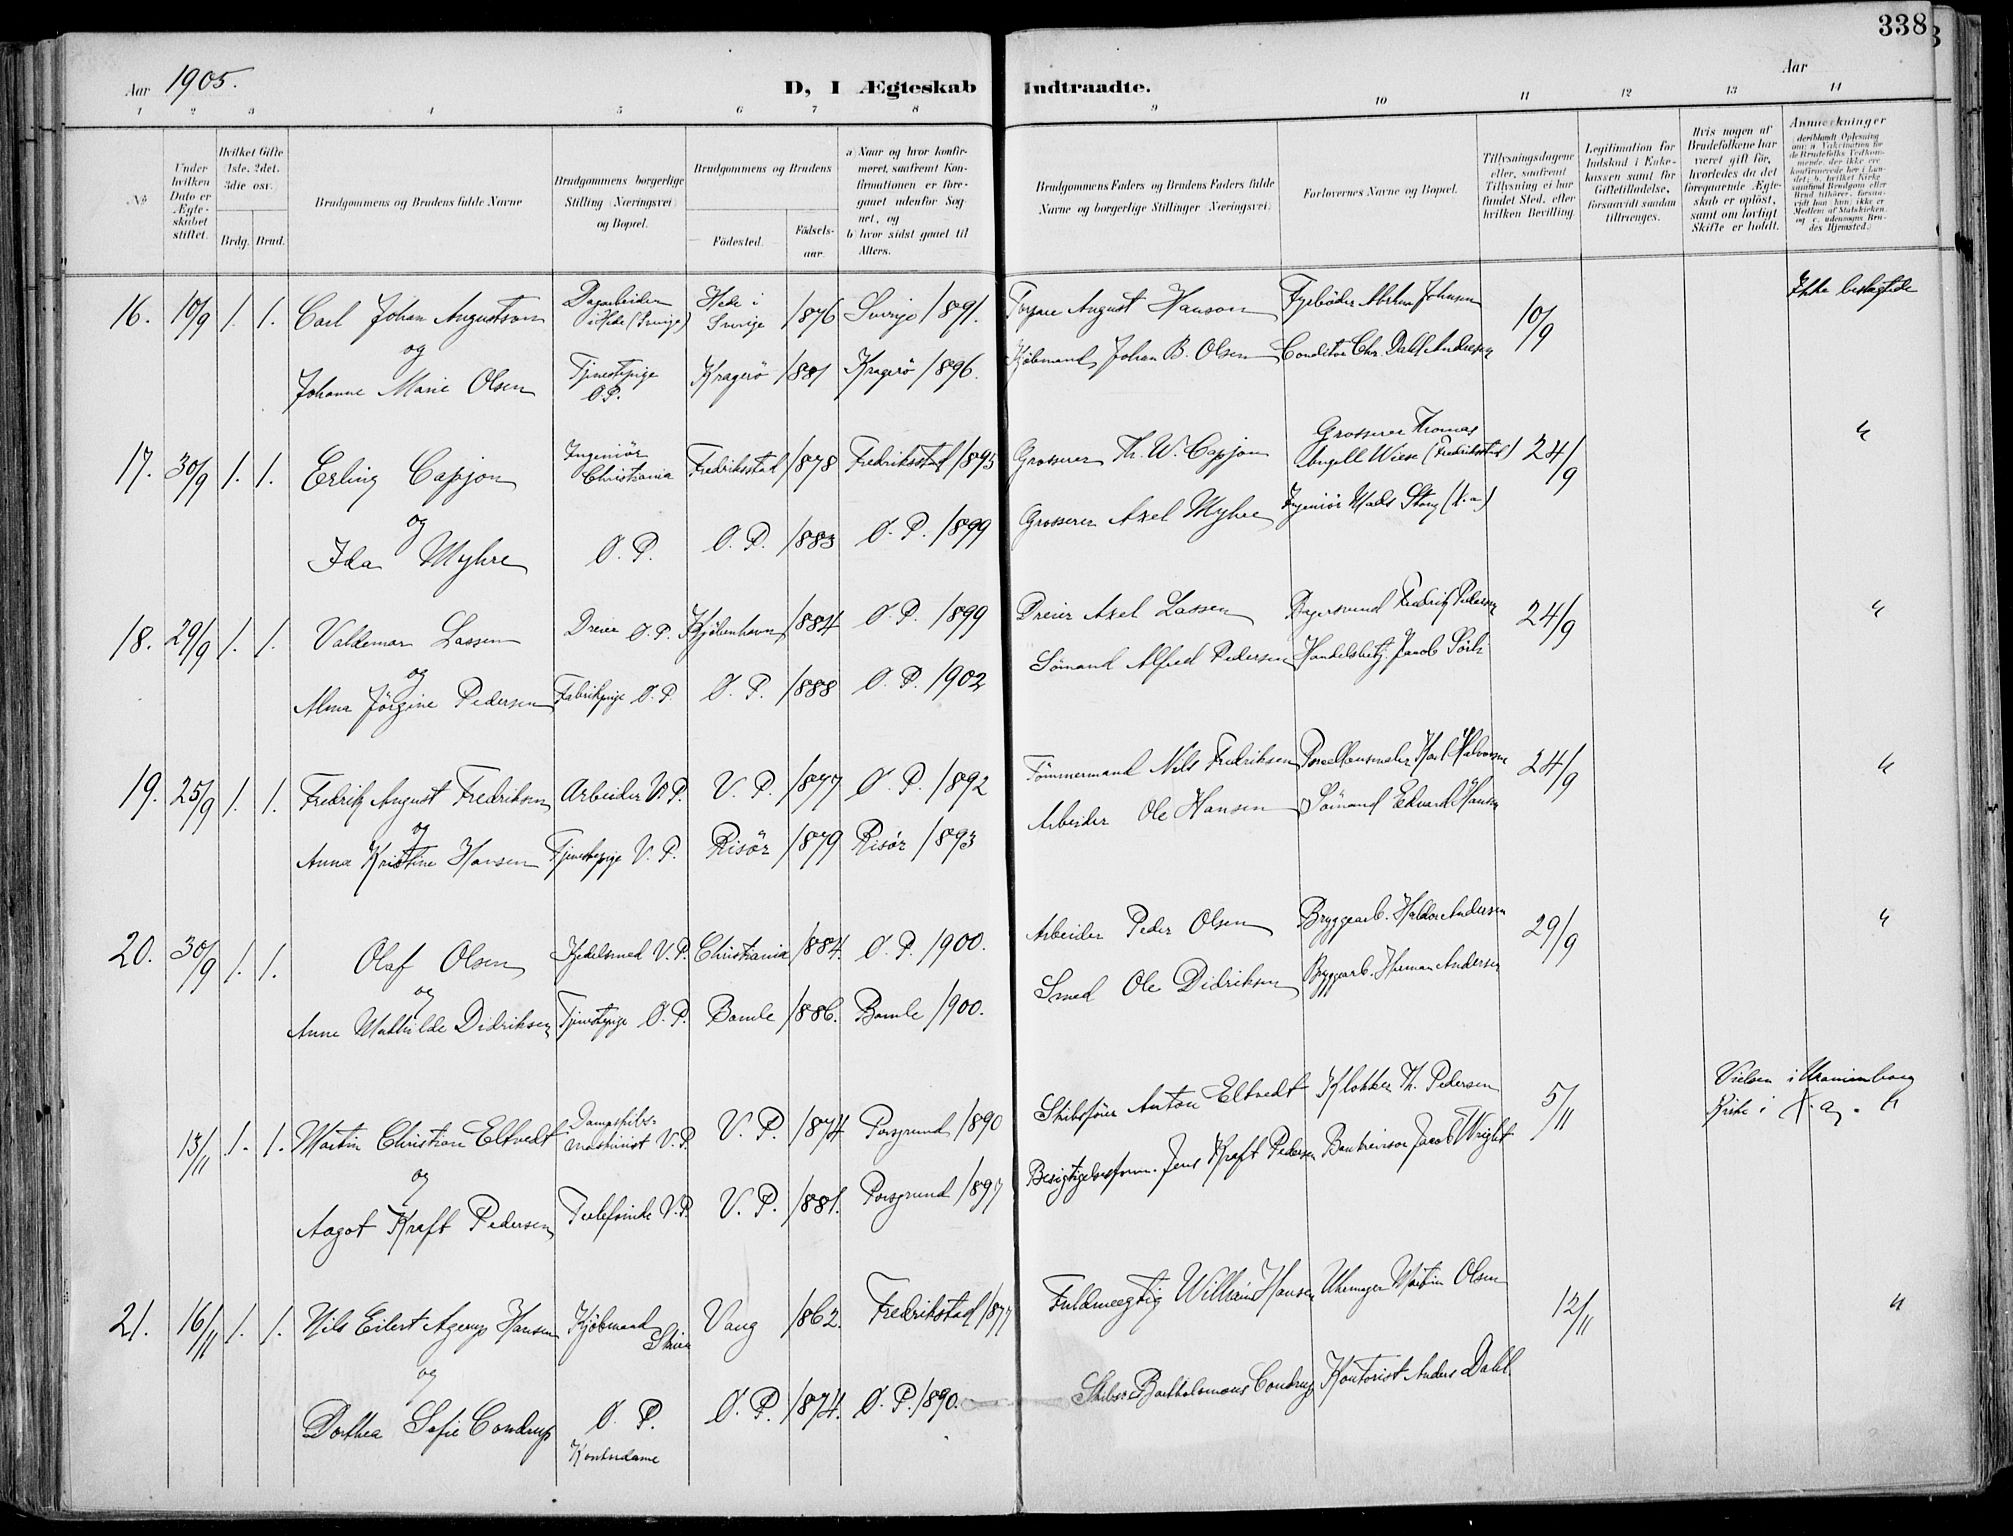 338
Aar 1905.
D, I Ægteskab Indtraadte.
Aar
1 2 3 4 5 6 7 8 9 10 11 12 13 14
No
Under hvilken Dato er Ægteskabet stiftet.
Hvilket Gifte 1ste, 2det, 3die osv.
Brdg. Brud.
Brudgommens og Brudens fulde Navne
Brudgommens borgerlige Stilling (Næringsvei) og Bopæl.
Brudgommens og Brudens
Fødested.
Fødsels-aar.
a) Naar og hvor konfirmeret, saafremt Konfirmationen er foregaaet udenfor Sognet, og
b) hvor sidst gaaet til Alters.
Brudgommens Faders og Brudens Faders fulde Navne og borgerlige Stillinger (Næringsvei)
Forlovernes Navne og Bopæl.
Tillysningsdagene eller, saafremt Tillysning ei har fundet Sted, efter hvilken Bevilling
Legitimation for Indskud i Enkekassen samt for Giftetilladelse, forsaavidt saadan tiltrænges.
Hvis nogen af Brudefolkene har været gift før, hvorledes da det foregaaende Ægteskab er opløst, samt om lovligt Skifte er holdt.
Anmærkninger
16. 10/9 1. 1. Carl Johan Augustson Dagarbeider i Hede (Sverige) Hede i Sverige 1876 Sverige 1891. August Hanson Fyrbøder Johnsen 10/9 Ikke beslægtede
og
Johanne Marie Olsen Tjenestepige Ø.P. Kragerø 1881 Kragerø 1896. Kjøbmand Johan B. Olsen Conditor Chr. Dahl Andersen
17. 30/9 1. 1. Erling Capjon Ingeniør Christiania Fredriksstad 1878 Fredriksstad 1895 Grosserer Th. W. Capjon Grosserer Thomas Angell Wiese (Fredriksstad) 24/9 "
og
Ida Myhre Ø. P. Ø. P. 1883 Ø. P. 1899 Grosserer Axel Myhre Ingeniør Mads
18. 29/9 1. 1. Valdemar Lassen Dreier Ø. P. Kjøbenhavn 1884 Ø. P. 1899 Dreier Axel Lassen Fredrik Pedersen 24/9 "
og
Alma Jørgine Pedersen Fabrikpige Ø. P. Ø. P. 1888 Ø. P. 1902 Sømand Alfred Pedersen Handelsbetj. Jacob
19. 25/9 1. 1. Fredrik August Fredriksen Arbeider V. P. V. P. 1877 Ø. P. 1892 Tømmermand Nils Fredriksen Porcellænsmaler Karl Halvorsen 24/9 "
og
Anna Kristine Hansen Tjenestepige V. P. Risør 1879 Risør 1893 Arbeider Ole Hansen Sømand Edvard Hansen
20. 30/9 1. 1. Olaf Olsen Kjedelsmed V. P. Christiania 1884. Ø. P. 1900. Arbeider Peder Olsen Bryggearb. Haldor Andersen 29/9 "
og
Anne Mathilde Didriksen Tjenestepige Ø. P. Bamle 1886. Bamle 1900. Smed Ole Didriksen Bryggearb. Herman Andersen
13/11 1. 1. Martin Christian Eltvedt Dampskibs-maskinist V. P. V. P. 1874 Porsgrund 1890 Skibsfører Anton Eltvedt Klokker Th. Pedersen 5/11 Vielsen i Uranienborg Kirke i X.a. "
og
Aagot Kraft Pedersen Telefonike V. P. V. P. 1881. Porsgrund 1897 Besigtigelsesform. Jens Kraft Pedersen Bankrevisor Jacob Wright
21. 16/11 1. 1. Nils Eilert Agerup Hansen Kjøbmand Skien Vang 1862. Fredrikstad 1877 Fuldmægtig William Hansen Uhrmager Martin Olsen 12/11 "
og
Dorthea Sofie Condrup Ø. P. Kontordame Ø. P. 1874. Ø. P. 1890. Skibsr. Bartholomæus Condrup Kontorist Anders Dahl.